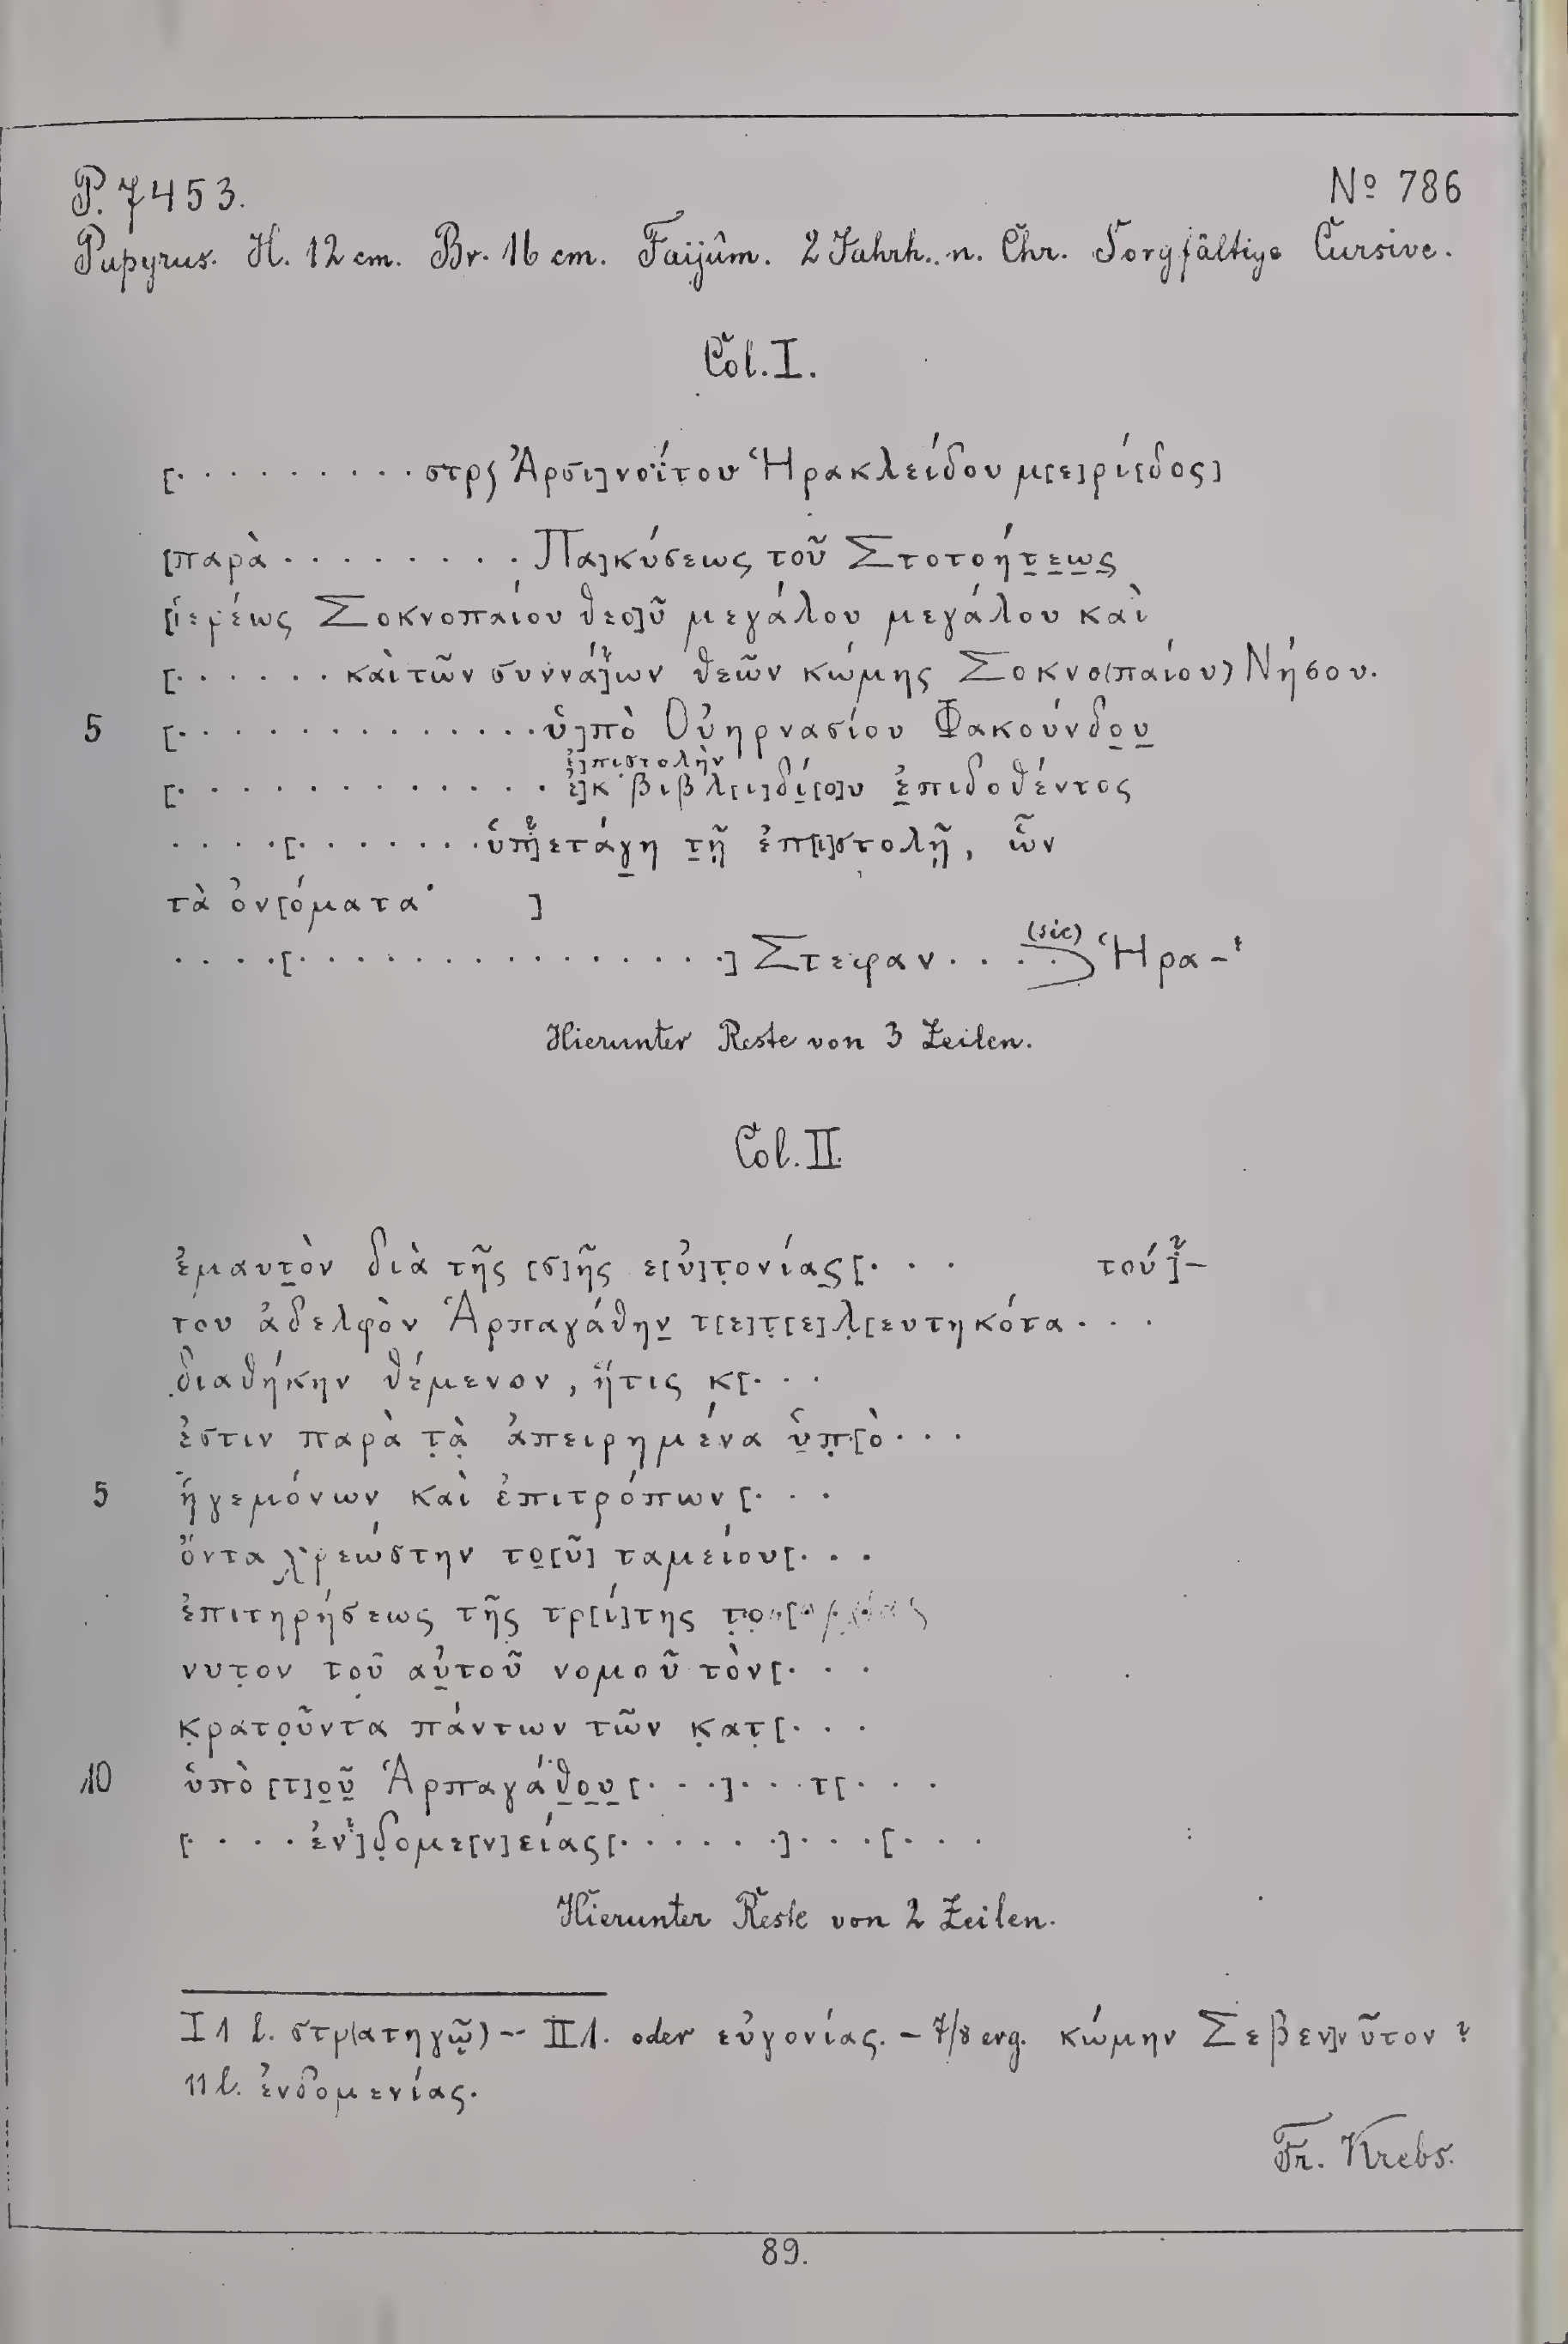 P. 7453. Nº 786
Papyrus. H. 12 cm. Br. 16 cm. Faijûm. 2 Jahrh. n. Chr. Sorgfältige Cursive.
Col. I.
[· · · · · · · · · στρ∫ Ἀρσι]νοΐτου Ἡρακλείδου μ[ε]ρί[δος]
[παρὰ · · · · · · · · Πα]κύσεως τοῦ Στοτοήτ̣ε̣ω̣ς̣
[ἱερέως Σοκνοπαίου θεο]ῦ μεγάλου μεγάλου καὶ
[· · · · · · καὶ τῶν συννά]ων θεῶν κώμης Σοκνο(παίου) Νήσου.
5 [· · · · · · · · · · · · · ὑ]πὸ Οὐηρνασίου Φακούνδο̣υ̣
ἐ]πιστολὴν
[· · · · · · · · · · · · · ἐ]κ βιβλ[ι]δί̣[ο]υ ἐ̣πιδοθέντος
· · · · [· · · · · · · ὑπ]ετάγ̣η τ̣ῇ ἐπ[ι]στολῇ, ὧν
τὰ ὀν[όματα· ]
· · · · [· · · · · · · · · · · · · · · ·] Στεφαν · · · · (sic) Ἡρα-
Hierunter Reste von 3 Zeilen.
Col. II.
ἐμαυτ̣ὸν διὰ τῆς [σ]ῆς ε[ὐ]τ̣ονίας̣ [· · · τού]-
του ἀδελφὸν Ἁρπαγάθην̣ τ[ε]τ̣[ε]λ̣[ευτηκότα · · ·
διαθήκην θέμενον, ἥτις κ[· · ·
ἐστιν παρὰ τ̣ὰ̣ ἀπειρημένα ὑ̣π̣[ὸ · · ·
5 ἡγεμόνων καὶ ἐπιτρόπων [· · ·
ὄντα χρεώστην το̣[ῦ] ταμείου[· · ·
ἐπιτηρήσεως τῆς τρ[ί]της
νυτ̣ον τοῦ αὐ̣τοῦ νομοῦ τὸν[· · ·
κ̣ρατο̣ῦντα πάντων τῶν κ̣ατ̣[· · ·
10 ὑπὸ [τ]ο̣ῦ̣ Ἁρπαγάθ̣ο̣υ̣ [· · · ·] · · · τ[· · ·
[· · · · ἐν]δ̣ομε[ν]είας[· · · · · · ·] · · · [· · ·
Hierunter Reste von 2 Zeilen.
I 1 l. στρ(ατηγῷ) -- II 1. oder εὐγονίας. – 7/8 erg. κώμην Σεβεν]νῦτον?
11 l. ἐνδομενίας.
Fr. Krebs.
89.